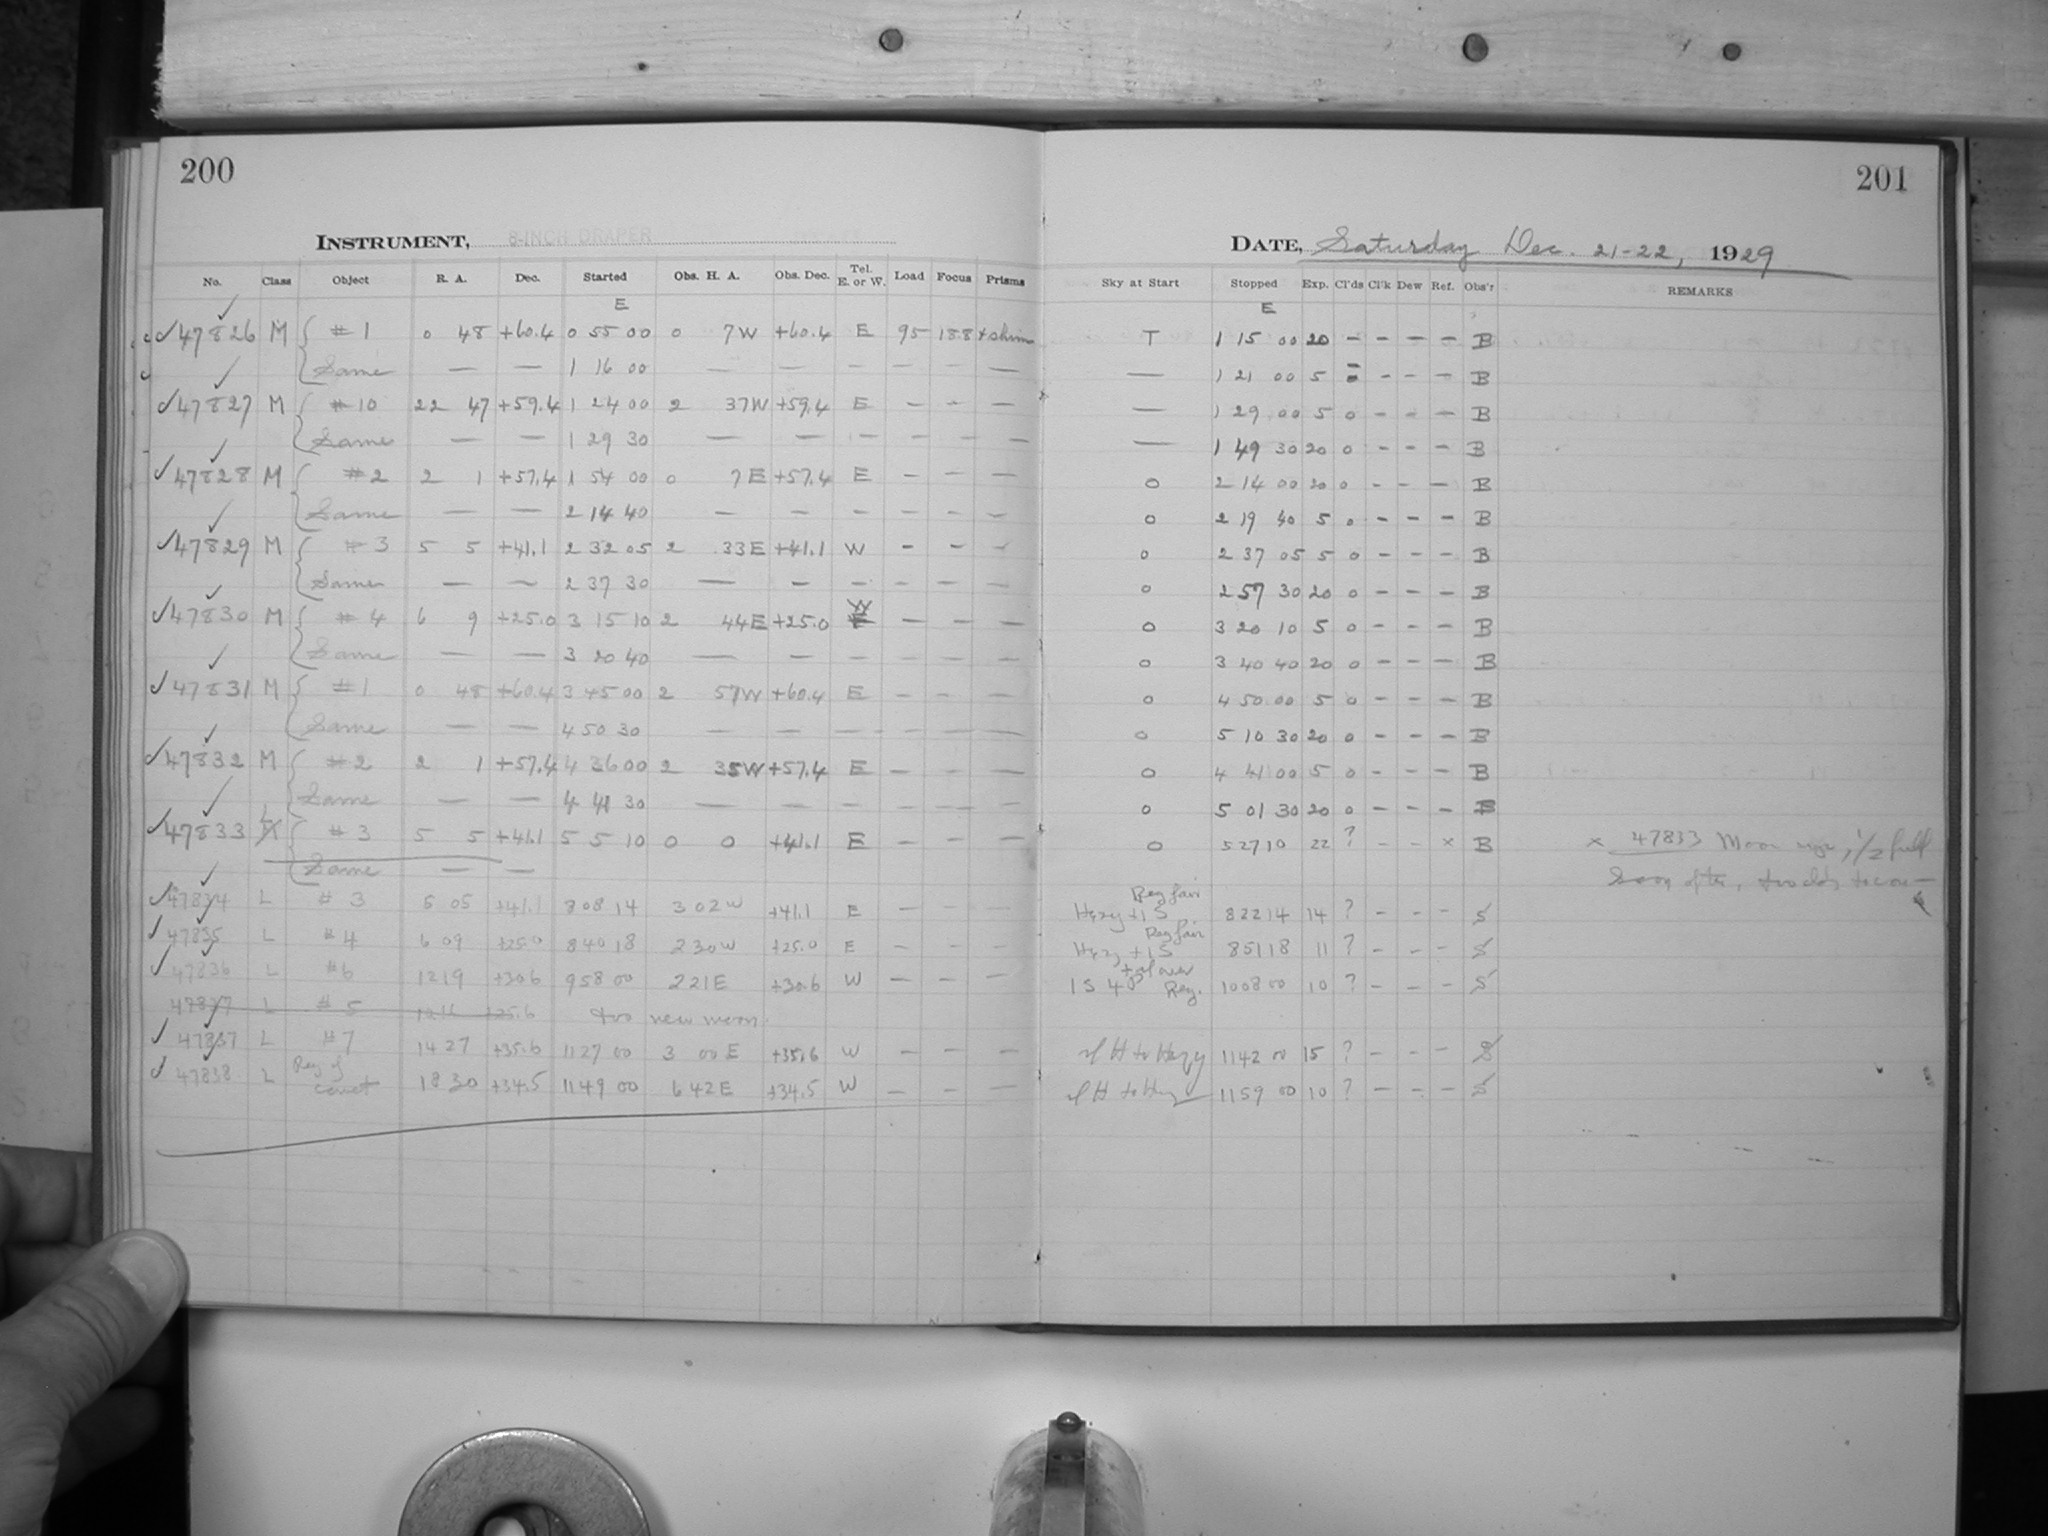 200
INSTRUMENT, 8-INCH DRAPER
No. Class Object R. A. Dec. Started Obs. H. A. Obs. Dec. Tel. E. or W. Load Focus Prisms
E
47826 M #1 0 48 +60.4 0 55 00 0 7W +60.4 E 95 18.8
Same — — 1 16 00 — — — — — —
47827 M #10 22 47 +59.4 1 24 00 2 37W +59.4 E — — —
Same — — 1 29 30 — — — — — —
47828 M #2 2 1 +57.4 1 54 00 0 7E +57.4 E — — —
Same — — 2 14 40 — — — — — —
47829 M #3 5 5 +41.1 2 32 05 2 33E +41.1 W — — —
Same — — 2 37 30 — — — — — —
47830 M #4 6 9 +25.0 3 15 10 2 44E +25.0 W — — —
Same — — 3 20 40 — — — — — —
47831 M #1 0 48 +60.4 3 45 00 2 57W +60.4 E — — —
Same — — 4 50 30 — — — — — —
47832 M #2 2 1 +57.4 4 36 00 2 35W +57.4 E — — —
Same — — 4 41 30 — — — — — —
47833 L #3 5 5 +41.1 5 5 10 0 0 +41.1 E — — —
Same — —
47834 L #3 5 05 +41.1 8 08 14 3 02W +41.1 E — — —
47835 L #4 6 09 +25.0 8 40 18 2 30W +25.0 E — — —
47836 L #6 12 19 +30.6 9 58 00 2 21E +30.6 W — — —
47837 L #5 25.6 too near moon
47837 L #7 14 27 +35.6 11 27 00 3 00 E +35.6 W — — —
47838 L Reg of comet 18 30 +34.5 11 49 00 6 42E +34.5 W — — —
201
DATE, Saturday Dec. 21-22, 1929
Sky at Start Stopped Exp. Cl'ds Cl'k Dew Ref. Obs'r REMARKS
E
T 1 15 00 20 — — — — B
— 1 21 00 5 — — — B
— 1 29 00 5 0 — — — B
— 1 49 30 20 0 — — — B
0 2 14 00 20 0 — — — B
0 2 19 40 5 0 — — — B
0 2 37 05 5 0 — — — B
0 2 57 30 20 0 — — — B
0 3 20 10 5 0 — — — B
0 3 40 40 20 0 — — — B
0 4 50 00 5 0 — — — B
0 5 10 30 20 0 — — — B
0 4 41 00 5 0 — — — B
0 5 01 30 20 0 — — — B
0 5 27 10 22 ? — — x B x 47833 Moon 1/2 full
Soon after,
Reg fair
Hazy +1S 8 22 14 14 ? — — — S
Reg fair
Hazy +1S 8 51 18 11 ? — — — S
1S Reg. 10 08 00 10 ? — — — S
H to Hazy 11 42 00 15 ? — — — S
H to Hazy 11 59 00 10 ? — — — S